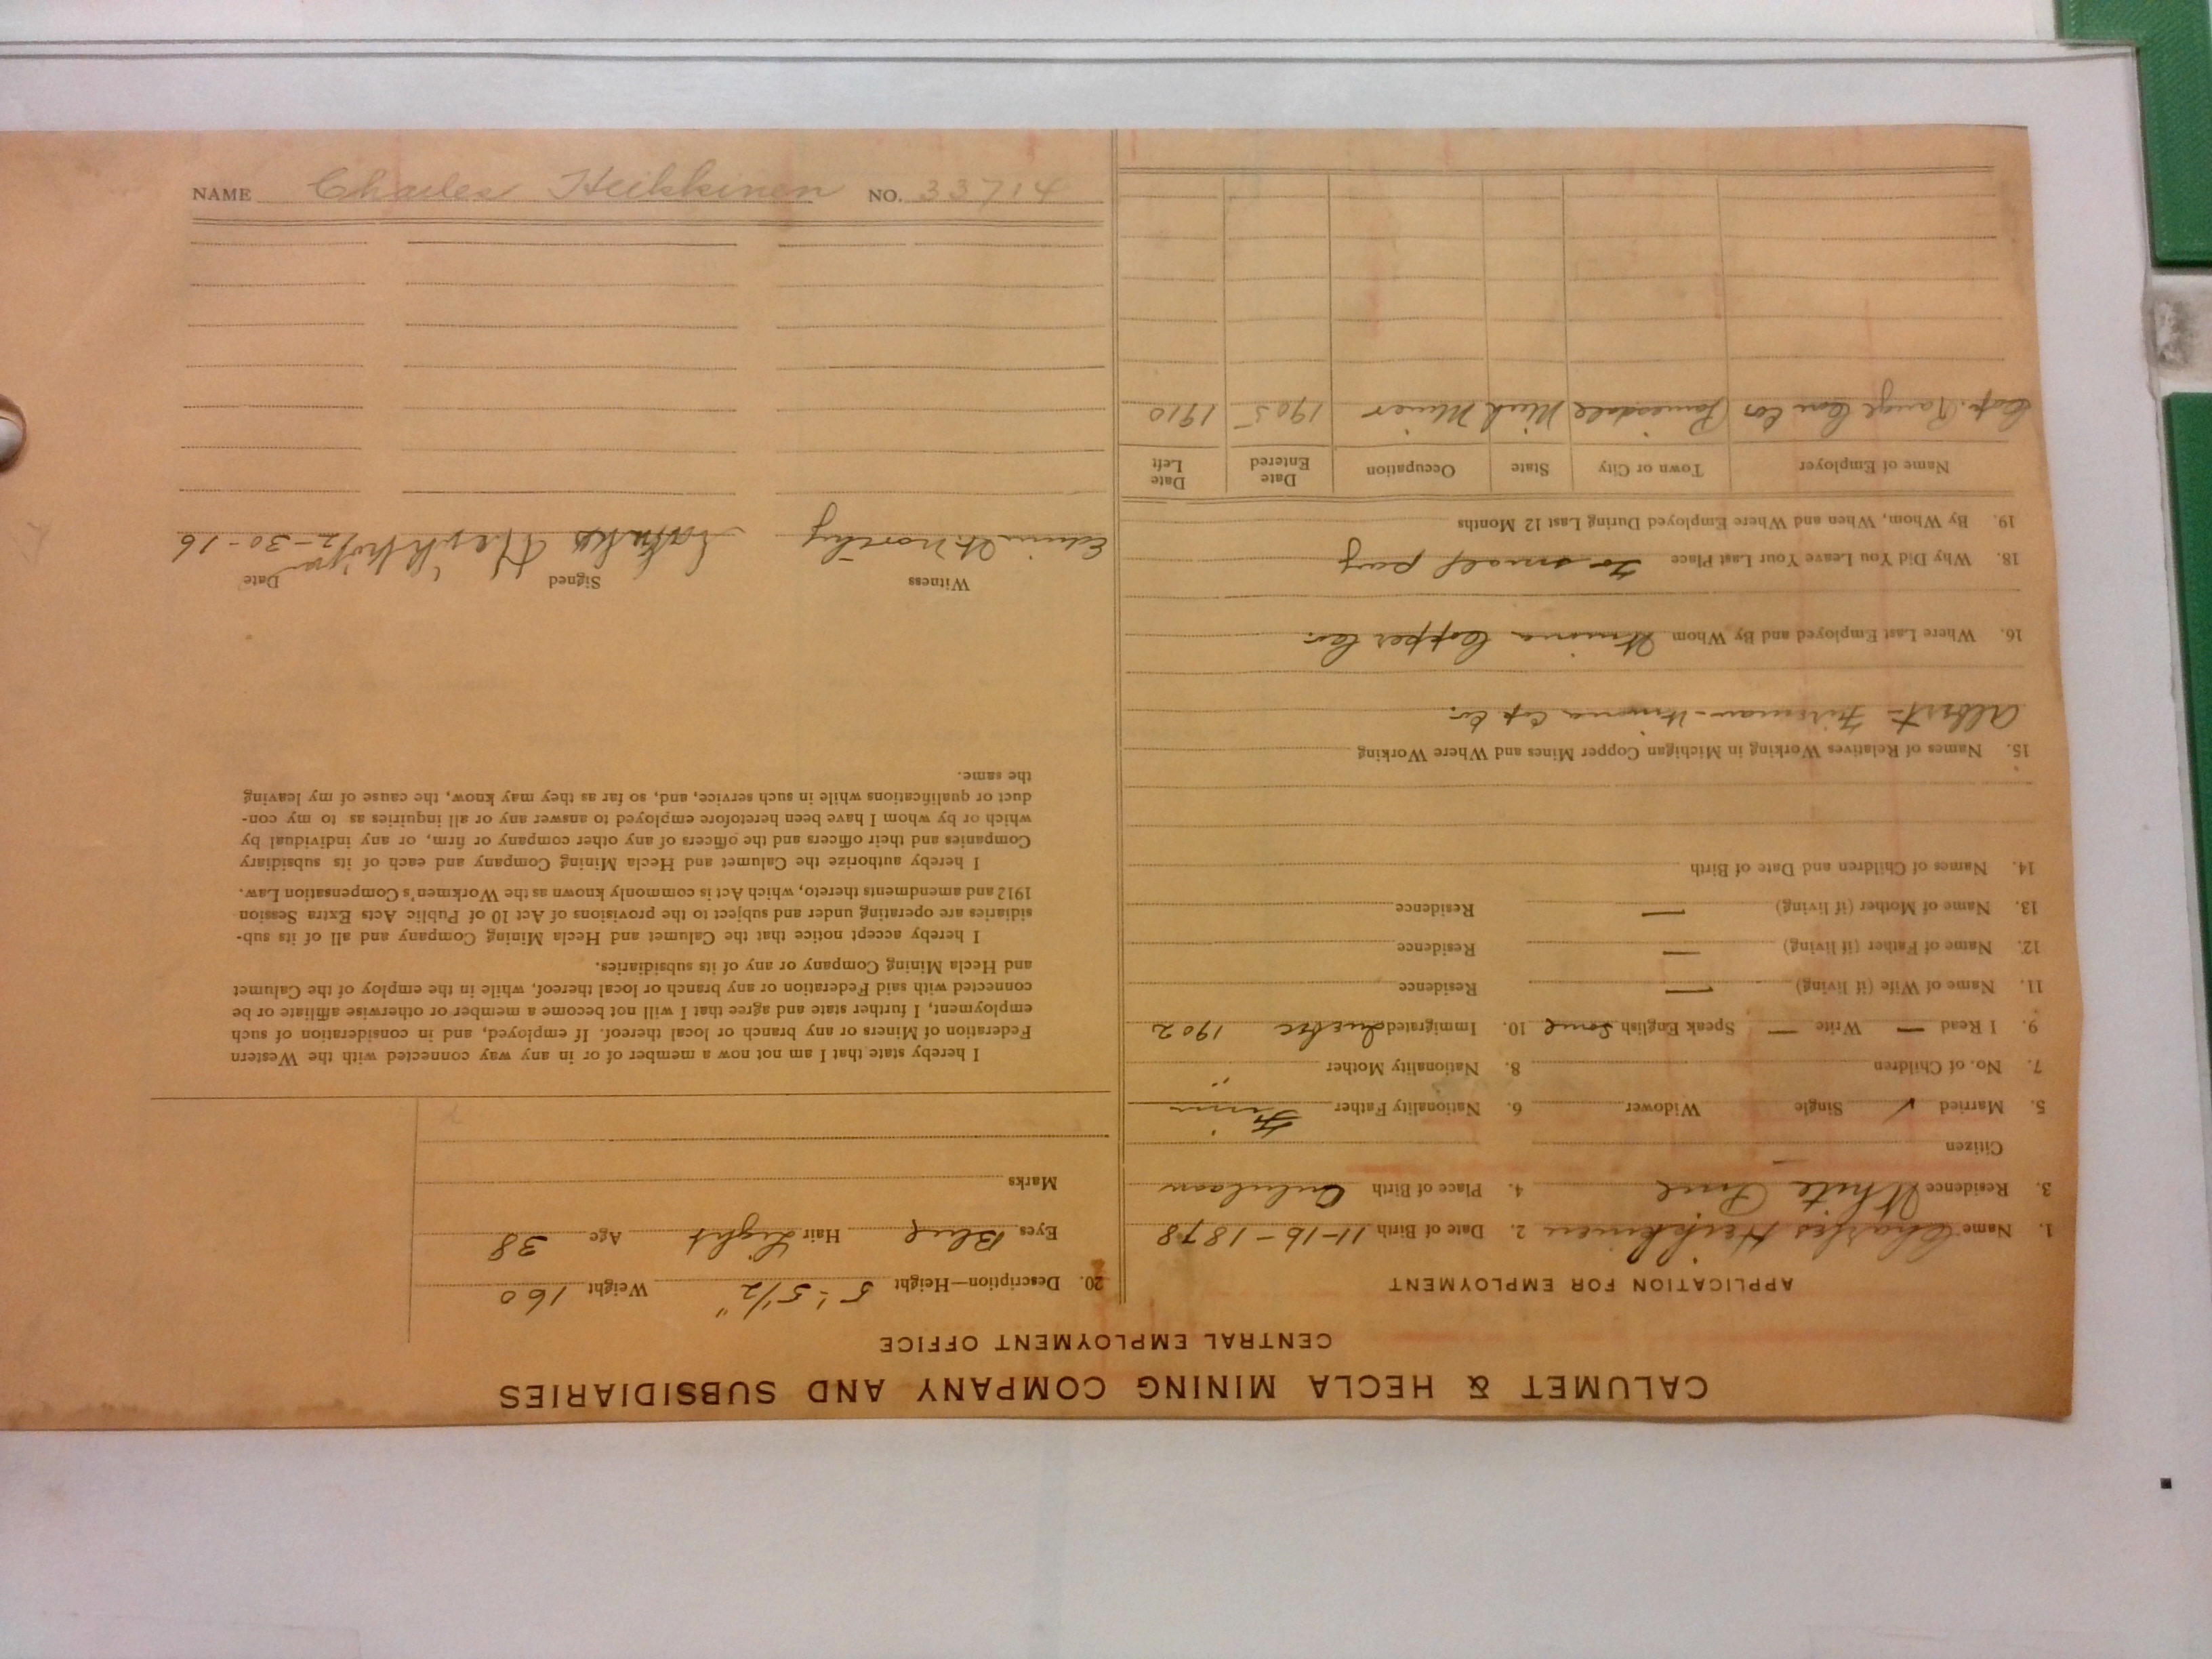 CALUMET & HECLA MINING COMPANY AND SUBSIDIARIES
CENTRAL EMPLOYMENT OFFICE
APPLICATION FOR EMPLOYMENT
1. Name Charles Heikkinen 2. Date of Birth 11-16-1878
3. Residence White Pine 4. Place of Birth
Citizen
5. Married ✓ Single Widower 6. Nationality Father Finn
7. No. of Children 8. Nationality Mother "
9. I Read — Write — Speak English some 10. Immigrated 1902
11. Name of Wife (if living) — Residence
12. Name of Father (if living) — Residence
13. Name of Mother (if living) — Residence
14. Names of Children and Date of Birth
15. Names of Relatives Working in Michigan Copper Mines and Where Working
Albert - - Winona Cop Co.
16. Where Last Employed and By Whom Winona Copper Co.
18. Why Did You Leave Your Last Place To small pay
19. By Whom, When and Where Employed During Last 12 Months
Name of Employer Town or City State Occupation Date Entered Date Left
Cop. Range Con Co Painesdale Mich Miner 1905 1910
20. Description—Height 5'-5 1/2" Weight 160
Eyes Blue Hair Light Age 38
Marks
I hereby state that I am not now a member of or in any way connected with the Western
Federation of Miners or any branch or local thereof. If employed, and in consideration of such
employment, I further state and agree that I will not become a member or otherwise affiliate or be
connected with said Federation or any branch or local thereof, while in the employ of the Calumet
and Hecla Mining Company or any of its subsidiaries.
I hereby accept notice that the Calumet and Hecla Mining Company and all of its sub-
sidiaries are operating under and subject to the provisions of Act 10 of Public Acts Extra Session
1912 and amendments thereto, which Act is commonly known as the Workmen's Compensation Law.
I hereby authorize the Calumet and Hecla Mining Company and each of its subsidiary
Companies and their officers and the officers of any other company or firm, or any individual by
which or by whom I have been heretofore employed to answer any or all inquiries as to my con-
duct or qualifications while in such service, and, so far as they may know, the cause of my leaving
the same.
Witness Signed Date
Edwin 12-30-16
NAME Charles Heikkinen NO. 33714